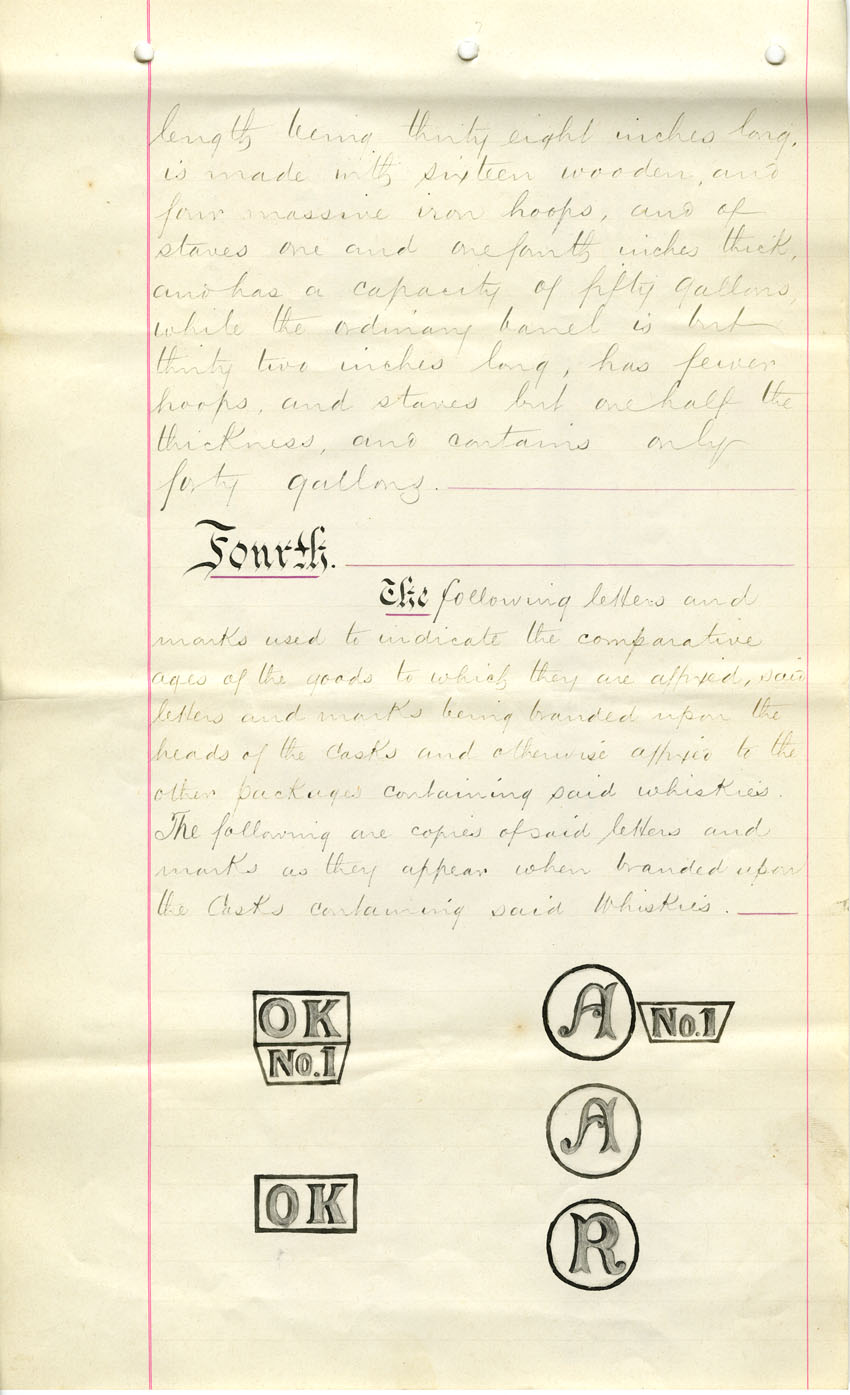 length being thirty eight inches long,
is made with sixteen wooden, and
four massive iron hoops, and of
staves one and one fourth inches thick,
and has a capacity of fifty gallons,
while the ordinary barrel is but
thirty two inches long, has fewer
hoops, and staves but one half the
thickness, and contains only
forty gallons.
Fourth.
The following letters and
marks used to indicate the comparative
ages of the goods to which they are affixed, said
letters and marks being branded upon the
heads of the Casks and otherwise affixed to the
other packages containing said whiskies.
The following are copies of said letters and
marks as they appear when branded upon
the Casks containing said Whiskies.
OK
No.1
OK
A No.1
A
R